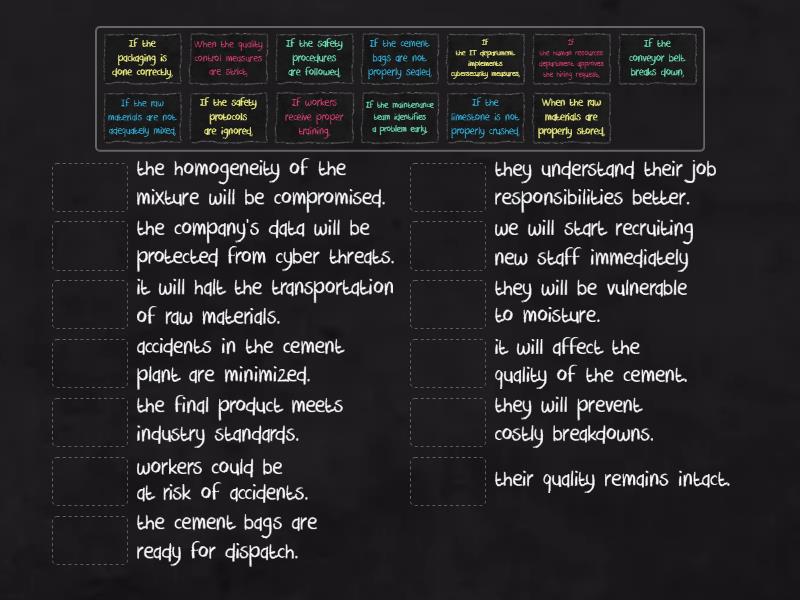 If the
packaging is
done correctly,
When the quality
control measures
are strict,
If the safety
procedures
are followed,
If the cement
bags are not
properly sealed,
If
the IT department
implements
cybersecurity measures,
If
the human resources
department approves
the hiring request,
If the
conveyor belt
breaks down,
If the raw
materials are not
adequately mixed,
If the safety
protocols
are ignored,
If workers
receive proper
training,
If the maintenance
team identifies
a problem early,
If the
limestone is not
properly crushed,
When the raw
materials are
properly stored,
the homogeneity of the
mixture will be compromised.
the company's data will be
protected from cyber threats.
it will halt the transportation
of raw materials.
accidents in the cement
plant are minimized.
the final product meets
industry standards.
workers could be
at risk of accidents.
the cement bags are
ready for dispatch.
they understand their job
responsibilities better.
we will start recruiting
new staff immediately
they will be vulnerable
to moisture.
it will affect the
quality of the cement.
they will prevent
costly breakdowns.
their quality remains intact.